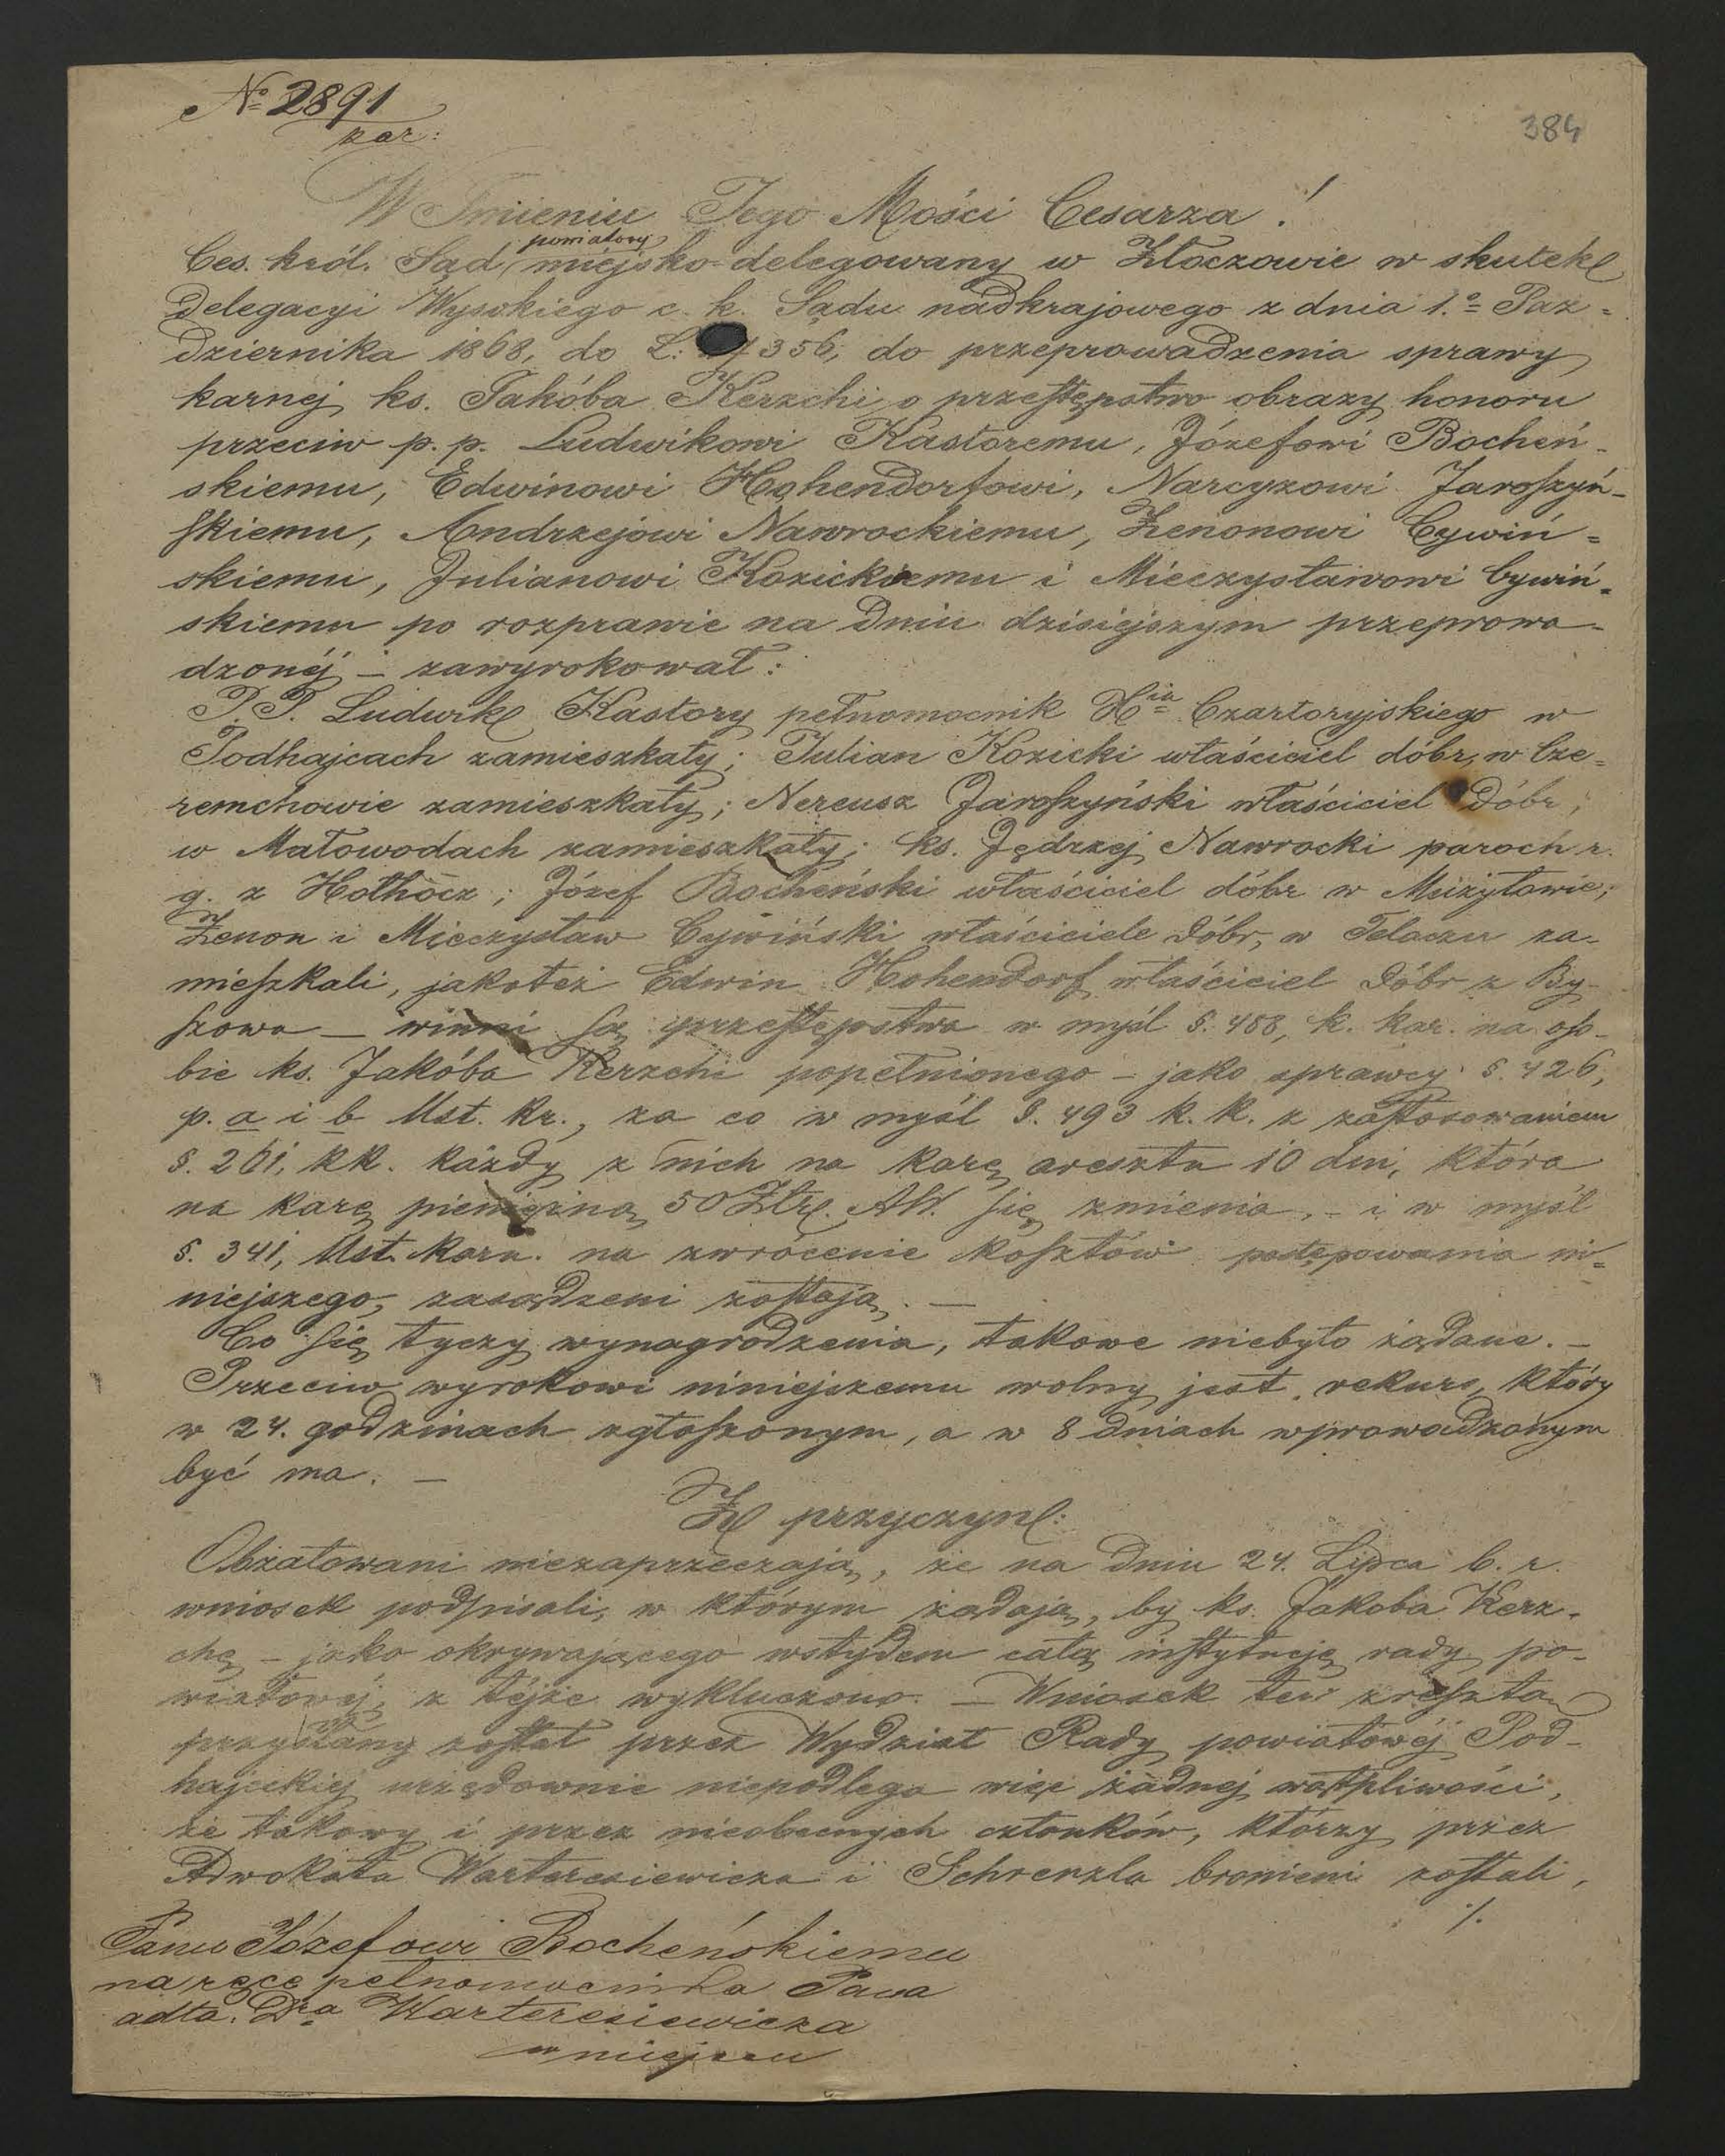 No 2891
kar:
384
W Imieniu Jego Mości Cesarza!
powiatowy
Ces. król. Sąd miejsko delegowany w Złoczowie w skutek
delegacyi Wysokiego c. k. Sądu nadkrajowego z dnia 1.o Paź=
dziernika 1868, do L: 356, do przeprowadzenia sprawy
karnej ks. Jakóba Kerzchi o przestępstwo obrazy honoru
przeciw p. p. Ludwikowi Kastoremu, Józefowi Bocheń-
skiemu, Edwinowi Hohendorfowi, Narcyzowi Jaroszyń-
skiemu, Andrzejowi Nawrockiemu, Zenonowi Cywiń=
skiemu, Julianowi Kozickiemu i Mieczysławowi Cywiń=
skiemu po rozprawie na dniu dzisiejszym przeprowa-
dzonéj – zawyrokował:
P.P. Ludwik Kastory pełnomocnik Xia Czartoryjskiego w
Podhajcach zamieszkały; Julian Kozicki właściciel dóbr, w Cze=
remchowie zamieszkały; Nereusz Jaroszyński właściciel dóbr,
w Małowodach zamieszkały; ks. Jędrzej Nawrocki paroch r.
g. z Hołhocz; Józef Bocheński właściciel dóbr w Mużyłowie;
Zenon i Mieczysław Cywiński właściciele dóbr, w Telaczu za-
mieszkali, jakoteż Edwin Hohendorf właściciel dóbr z By-
szowa – winni są przestępstwa w myśl §. 488, k. kar. na oso-
bie ks. Jakóba Kerzchi popełnionego – jako sprawcy §. 426,
p. a i b Ust. kr., za co w myśl §. 493 k. k. z zastosowaniem
§. 261, kk. każdy z nich na karę aresztu 10 dni, która
na karę pieniężną 50 Złr. AW. się zmienia, – i w myśl
§. 341, Ust. karn. na zwrócenie kosztów postępowania ni=
niejszego, zasądzeni zostają. –
Co się tyczy wynagrodzenia, takowe niebyło żądane. –
Przeciw wyrokowi niniejszemu wolny jest rekurs, który
w 24. godzinach zgłoszonym, a w 8 dniach wprowadzonym
być ma. –
Z przyczyn:
Obżałowani niezaprzeczają, że na dniu 24. Lipca b. r.
wniosek podpisali, w którym żądają, by ks. Jakoba Kerz-
chę – jako okrywającego wstydem całą instytucję rady po-
wiatowéj, z téjże wykluczono. – Wniosek ten zresztą
przysłany został przez Wydział Rady powiatowéj Pod-
hajeckiéj urzędownie niepodlega więc żadnej wątpliwości,
że takowy i przez nieobecnych członków, którzy przez
Adwokata Warteresiewicza i Schrenzla bronieni zostali,
./.
Panu Józefowi Bocheńskiemu
na ręce pełnomocnika Pana
adta. Dra Warteresiewicza
w miejscu